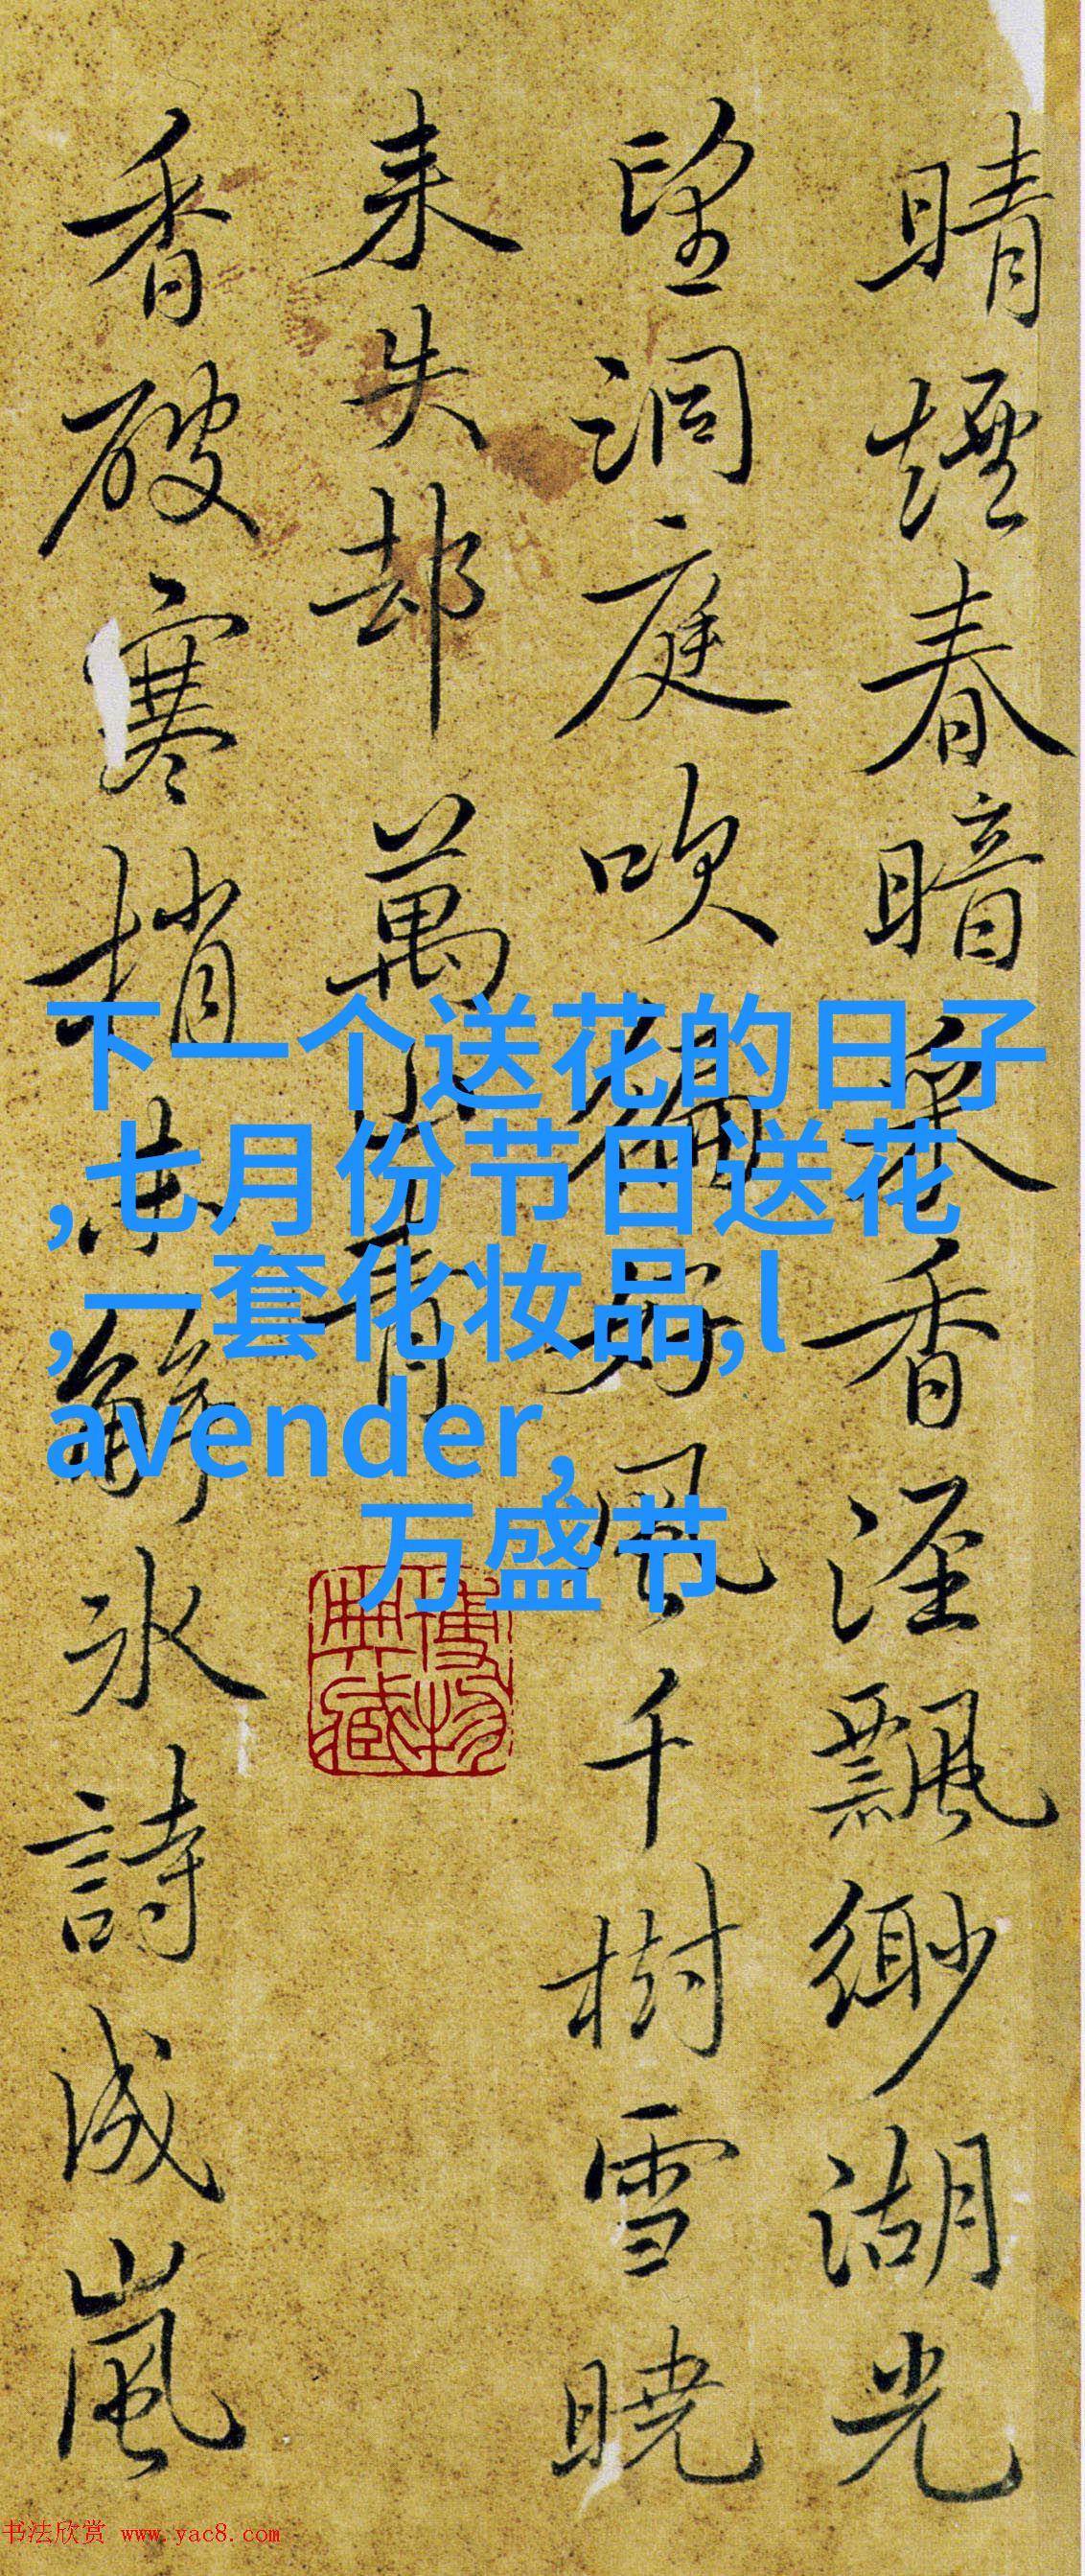 晴煙春暗采香涇飄緲湖光
望洞庭吹徧好風千樹雪曉
来失却萬山青
香破寒梢未解冰詩成嵐
下一个送花的日子
,七月份节日送花
,一套化妆品,l
avender,
万盛节
博物
典藏
书法欣赏 www.yac8.com